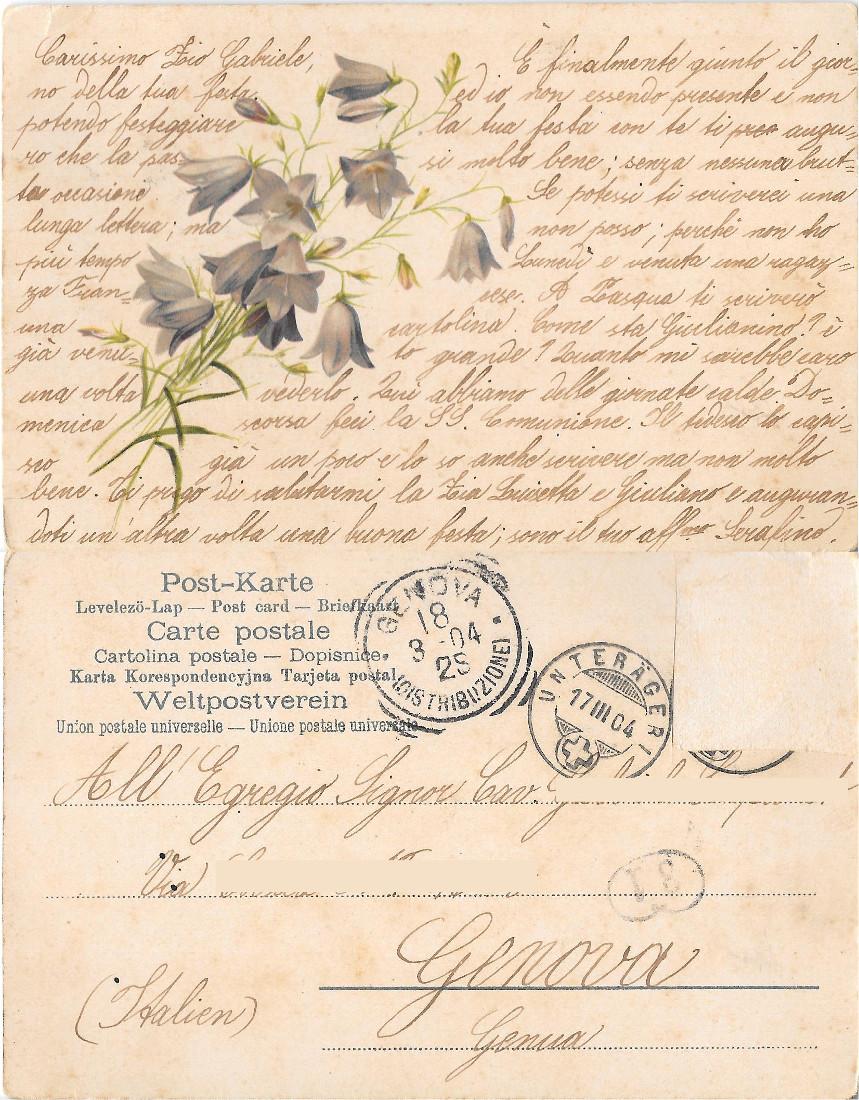 Carissimo Zio Gabriele, È finalmente giunto il gior=
no della tua festa ed io non essendo presente e non
potendo festeggiare la tua festa con te ti prea augu=
ro che la pas= si molto bene; senza nessuna brut=
ta occasione Se potessi ti scriverei una
lunga lettera; ma non posso; perché non ho
più tempo Lunedì e venuta una ragaz=
za Fran= cese. A Pasqua ti scriverò
una cartolina. Come sta Giulianino? è
già venu= to grande? Quanto mi sarebbe caro
una volta vederlo. Qui abbiamo delle giornate calde. Do=
menica scorsa feci la SS. Comunione. Il tedesco lo capi=
sco già un poco e lo so anche scrivere ma non molto
bene. Ti prego di salutarmi la Zia Luisetta e Giuliano e auguran=
doti un'altra volta una buona festa; sono il tuo aff.mo Serafino.
Post-Karte
Levelezö-Lap — Post card — Briefkaart
Carte postale
Cartolina postale — Dopisnice.
Karta Korespondencyjna Tarjeta postal
Weltpostverein
Union postale universelle — Unione postale universale
GENOVA
18
3 -04
25
(DISTRIBUZIONE)
UNTERÄGERI
17 III 04
All' Egregio Signor Cav.
Via
31
Genova
(Italien)
Genua